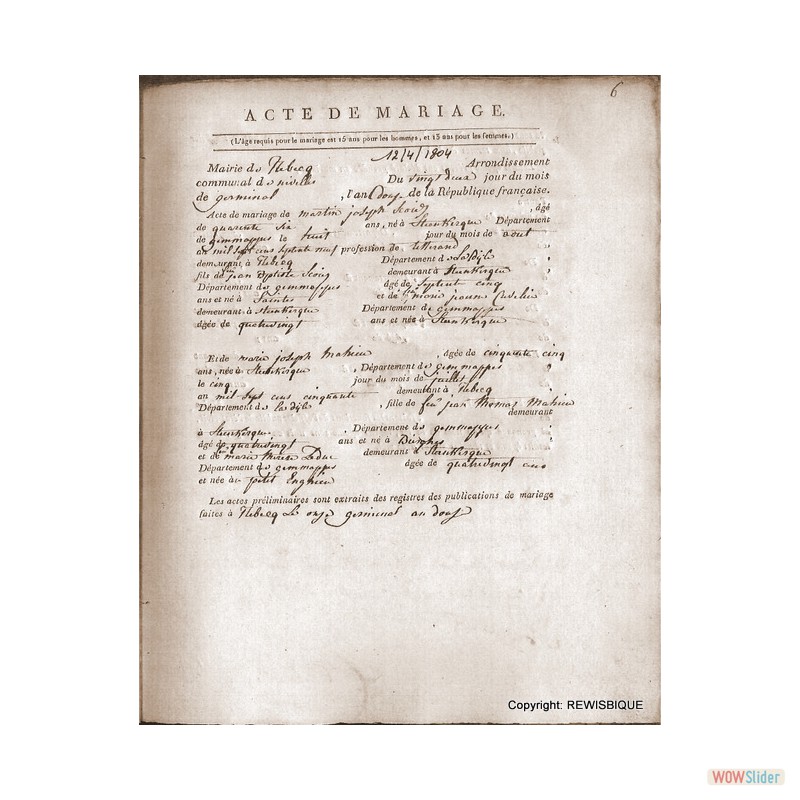 6
ACTE DE MARIAGE.
(L'âge requis pour le mariage est 15 ans pour les hommes, et 13 ans pour les femmes.)
12/4/1804
Mairie de Rebecq Arrondissement
communal de nivelles Du vingt deux jour du mois
de germinal , l'an douz de la République française.
Acte de mariage de martin joseph , âgé
de quarente six ans, né à Steenkerque Département
de gemmappes le huit jour du mois de aout
an mil sept cens septente neuf profession de
demeurant à Rebecq Département de La Dyle
fils de jean Baptiste demeurant à Steenkerque
Département de gemmappes âgé de septent cinq
ans et né à Saintes et de marie jeanne
demeurant à Steenkerque Département de gemmappes
âgée de quatrevingt ans et née à Steenkerque
Et de marie joseph mahieu , âgée de cinquante cinq
ans, née à Steenkerque , Département de gemmappes
le cinq jour du mois de juillet
an mil sept cens cinquante demeurant à Rebecq
Département de la dyle , fille de feu jean thomas mahieu
demeurant
à Steenkerque , Département de gemmappes
âgé de quatrevingt ans et né à
et de marie Leduc demeurant à Steenkerque
Département de gemmappes âgée de quatrevingt
et née à petit Enghien
Les actes préliminaires sont extraits des registres des publications de mariage
faites à Rebecq Le onze germinal an douz
Copyright: REWISBIQUE
WOWSlider